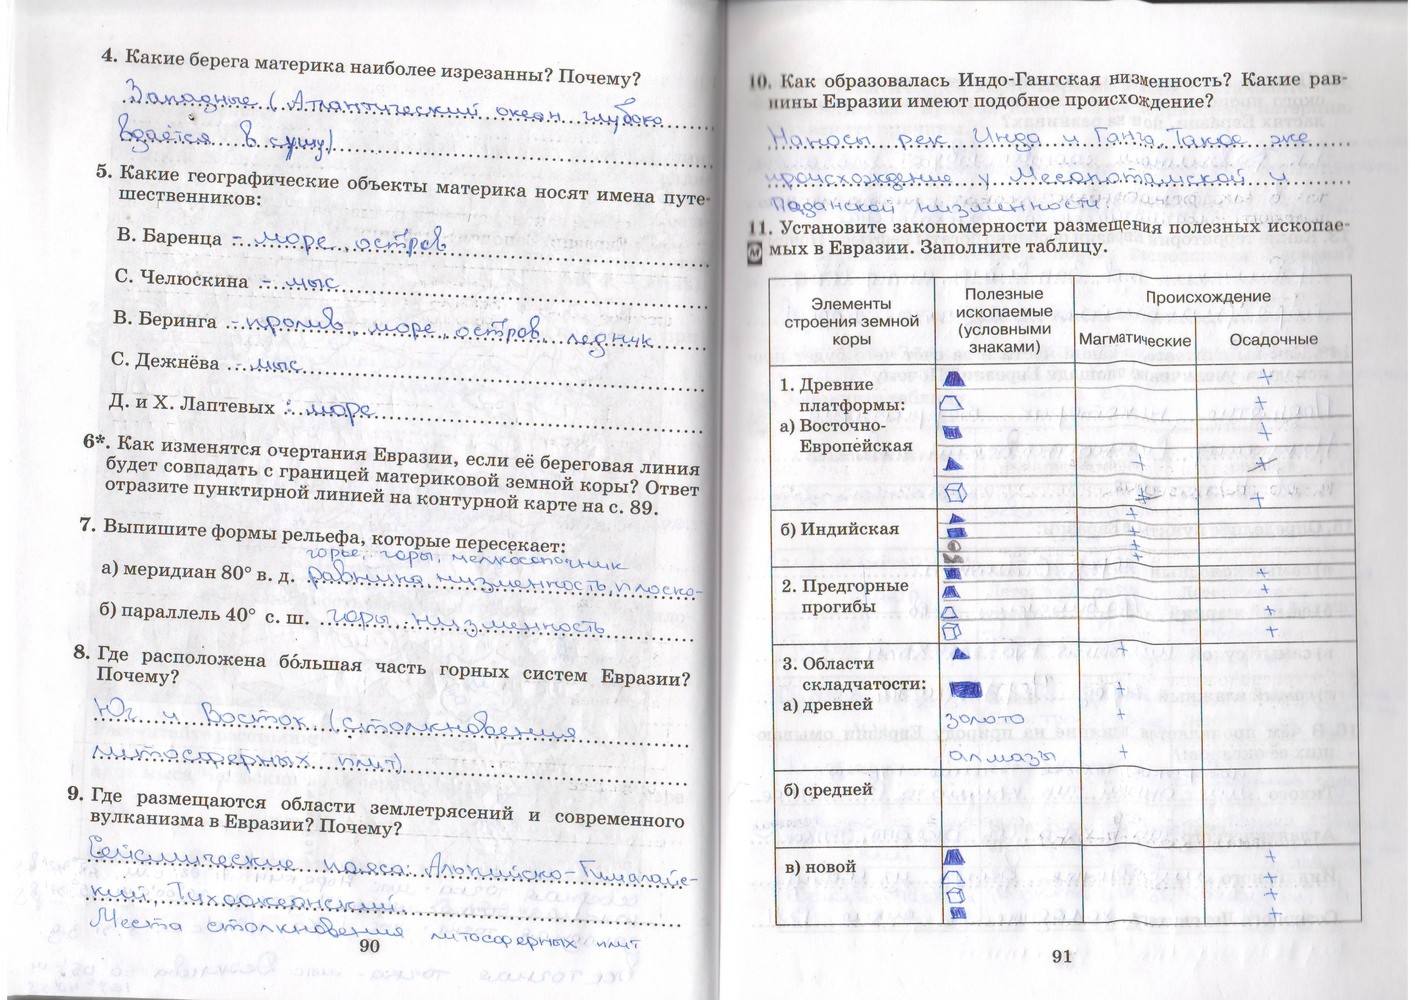 4. Какие берега материка наиболее изрезанны? Почему?
Западные (Атлантический океан глубоко
вдаётся в сушу)
5. Какие географические объекты материка носят имена путе-
шественников:
В. Баренца - море, остров
С. Челюскина - мыс
В. Беринга - пролив, море, остров, ледник
С. Дежнёва - мыс
Д. и Х. Лаптевых - море
6*. Как изменятся очертания Евразии, если её береговая линия
будет совпадать с границей материковой земной коры? Ответ
отразите пунктирной линией на контурной карте на с. 89.
7. Выпишите формы рельефа, которые пересекает:
горье, горы, мелкосопочник
а) меридиан 80° в. д. равнина, низменность, плоско-
б) параллель 40° с. ш. горы, низменность
8. Где расположена бо́льшая часть горных систем Евразии?
Почему?
Юг и Восток (столкновения
литосферных плит)
9. Где размещаются области землетрясений и современного
вулканизма в Евразии? Почему?
Сейсмические пояса: Альпийско-Гималайс-
кий, Тихоокеанский.
Места столкновения литосферных плит
90
10. Как образовалась Индо-Гангская низменность? Какие рав-
нины Евразии имеют подобное происхождение?
Наносы рек Инда и Ганга. Такое же
происхождение у Месопотамской и
Паданской низменности.
11. Установите закономерности размещения полезных ископае-
М мых в Евразии. Заполните таблицу.
Элементы строения земной коры
Полезные ископаемые (условными знаками)
Происхождение
Магматические
Осадочные
1. Древние
платформы:
а) Восточно-
Европейская
+
+
+
+
+
+
+
б) Индийская
+
+
+
+
2. Предгорные
прогибы
+
+
+
+
3. Области
складчатости:
а) древней
+
+
золото +
алмазы +
б) средней
в) новой
+
+
+
+
91